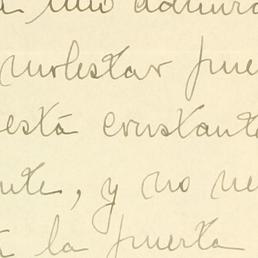 uno admira
molestar pue
está constante
nte, y no ne
la puerta